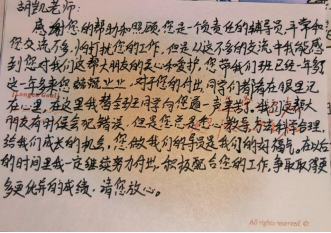 胡凯老师:
感谢您的帮助和照顾,您是一个负责任的辅导员,平常和
您交流不多,怕打扰您的工作,但是从这不多的交流中我能感
到您对我们这帮大朋友的关心和爱护,您带我们班已经一年级
一年多来您兢兢业业,对于您的付出,同学们都看在眼里记
在心里,在这里我替全班同学向您道一声辛苦,我们这帮大
朋友有时候会犯错误,但是您总是耐心教导,方法科学合理,
给我们成长的机会,您做我们的导员是我们的好福气。在以后
的时间里我一定继续努力付出,积极配合您的工作,争取取得更
多更优异的成绩,请您放心。
All rights reserved. ©